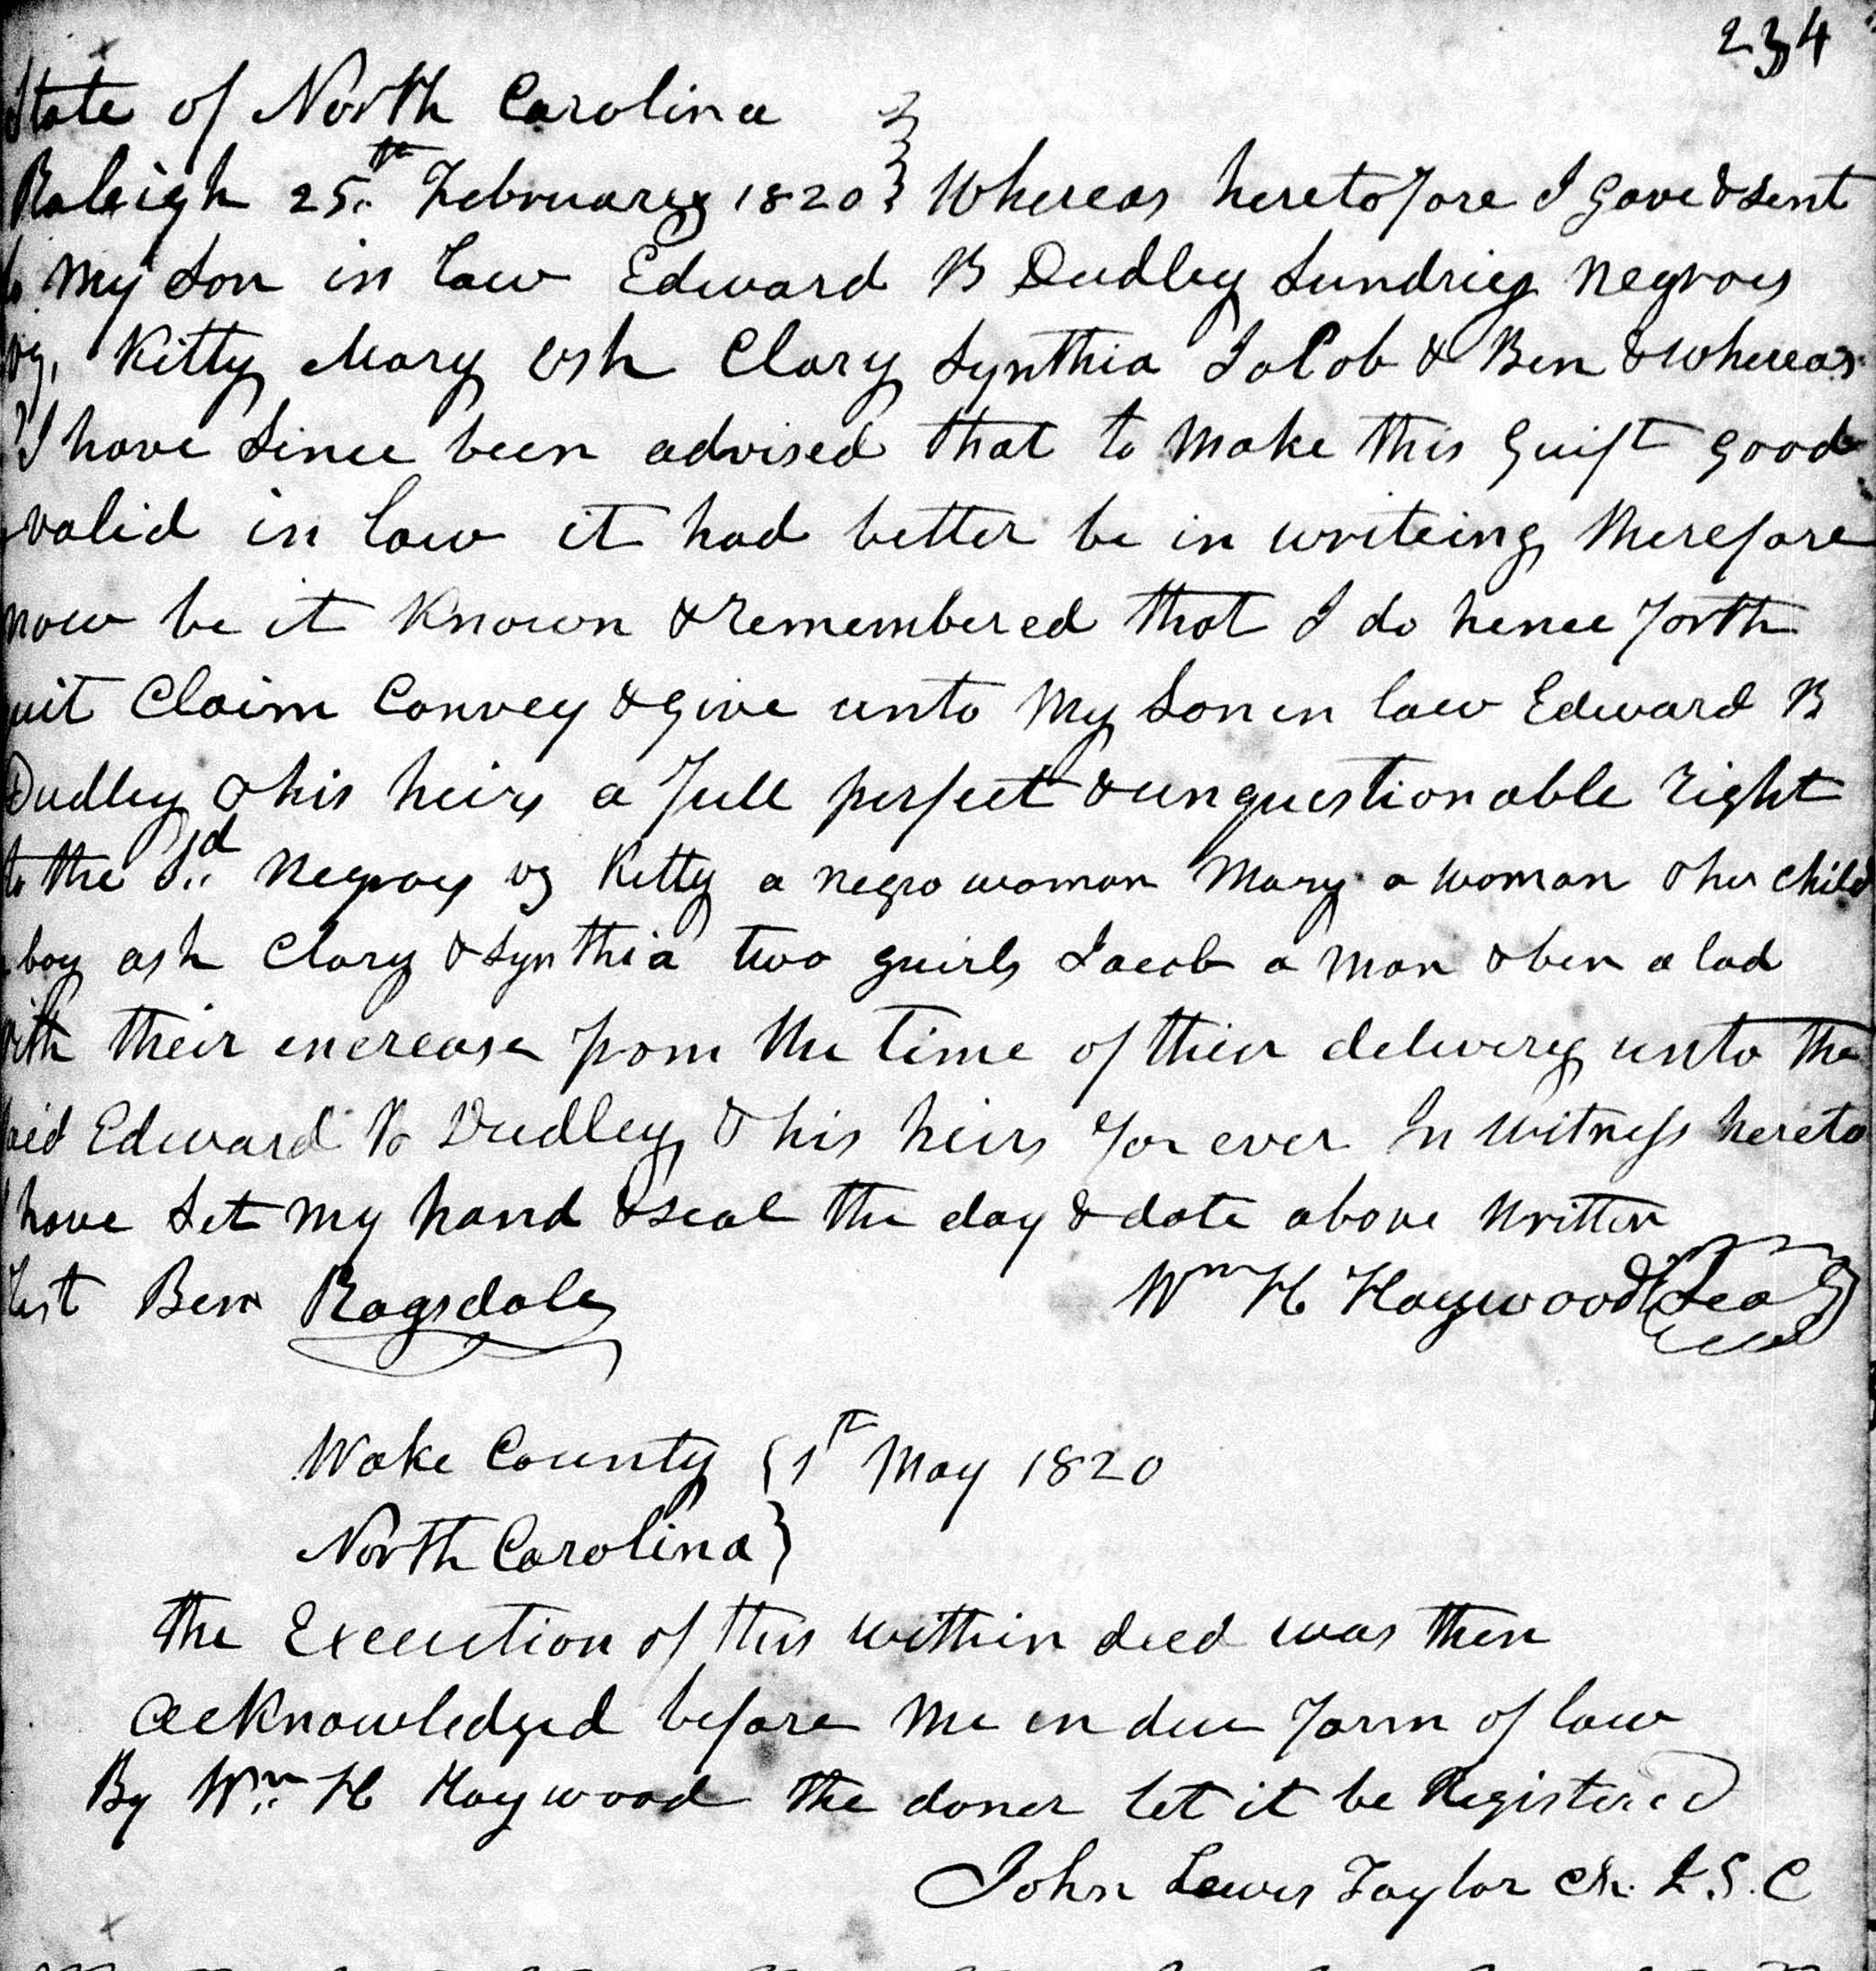 234
State of North Carolina
Raleigh 25th February 1820 } Whereas heretofore I gave & sent
to my son in law Edward B Dudley Sundries negroes
vz, Kitty Mary Ash Clary Synthia Jacob & Ben & whereas
I have since been advised that to make this guift good
valid in law it had better be in writeing therefore
now be it known & remembered that I do hence forth
quit Claim Convey & give unto my son in law Edward B
Dudley & his heirs a full perfect & unquestionable right
to the sd. negroes vz Kitty a negro woman Mary a woman & her child
boy ash Clary & Synthia two guirls Jacob a man & ben a lad
with their increase from the time of their delivery unto the
said Edward B Dudley & his heirs for ever In witness hereto
I have set my hand & seal the day & date above written
Test Ben Ragsdale Wm H Haywood (Seal)
Wake County { 1st May 1820
North Carolina }
the Execution of this within deed was then
acknowledged before me in due form of law
By Wm. H Haywood the doner let it be Registered
John Lewis Taylor Ch. J. S. C